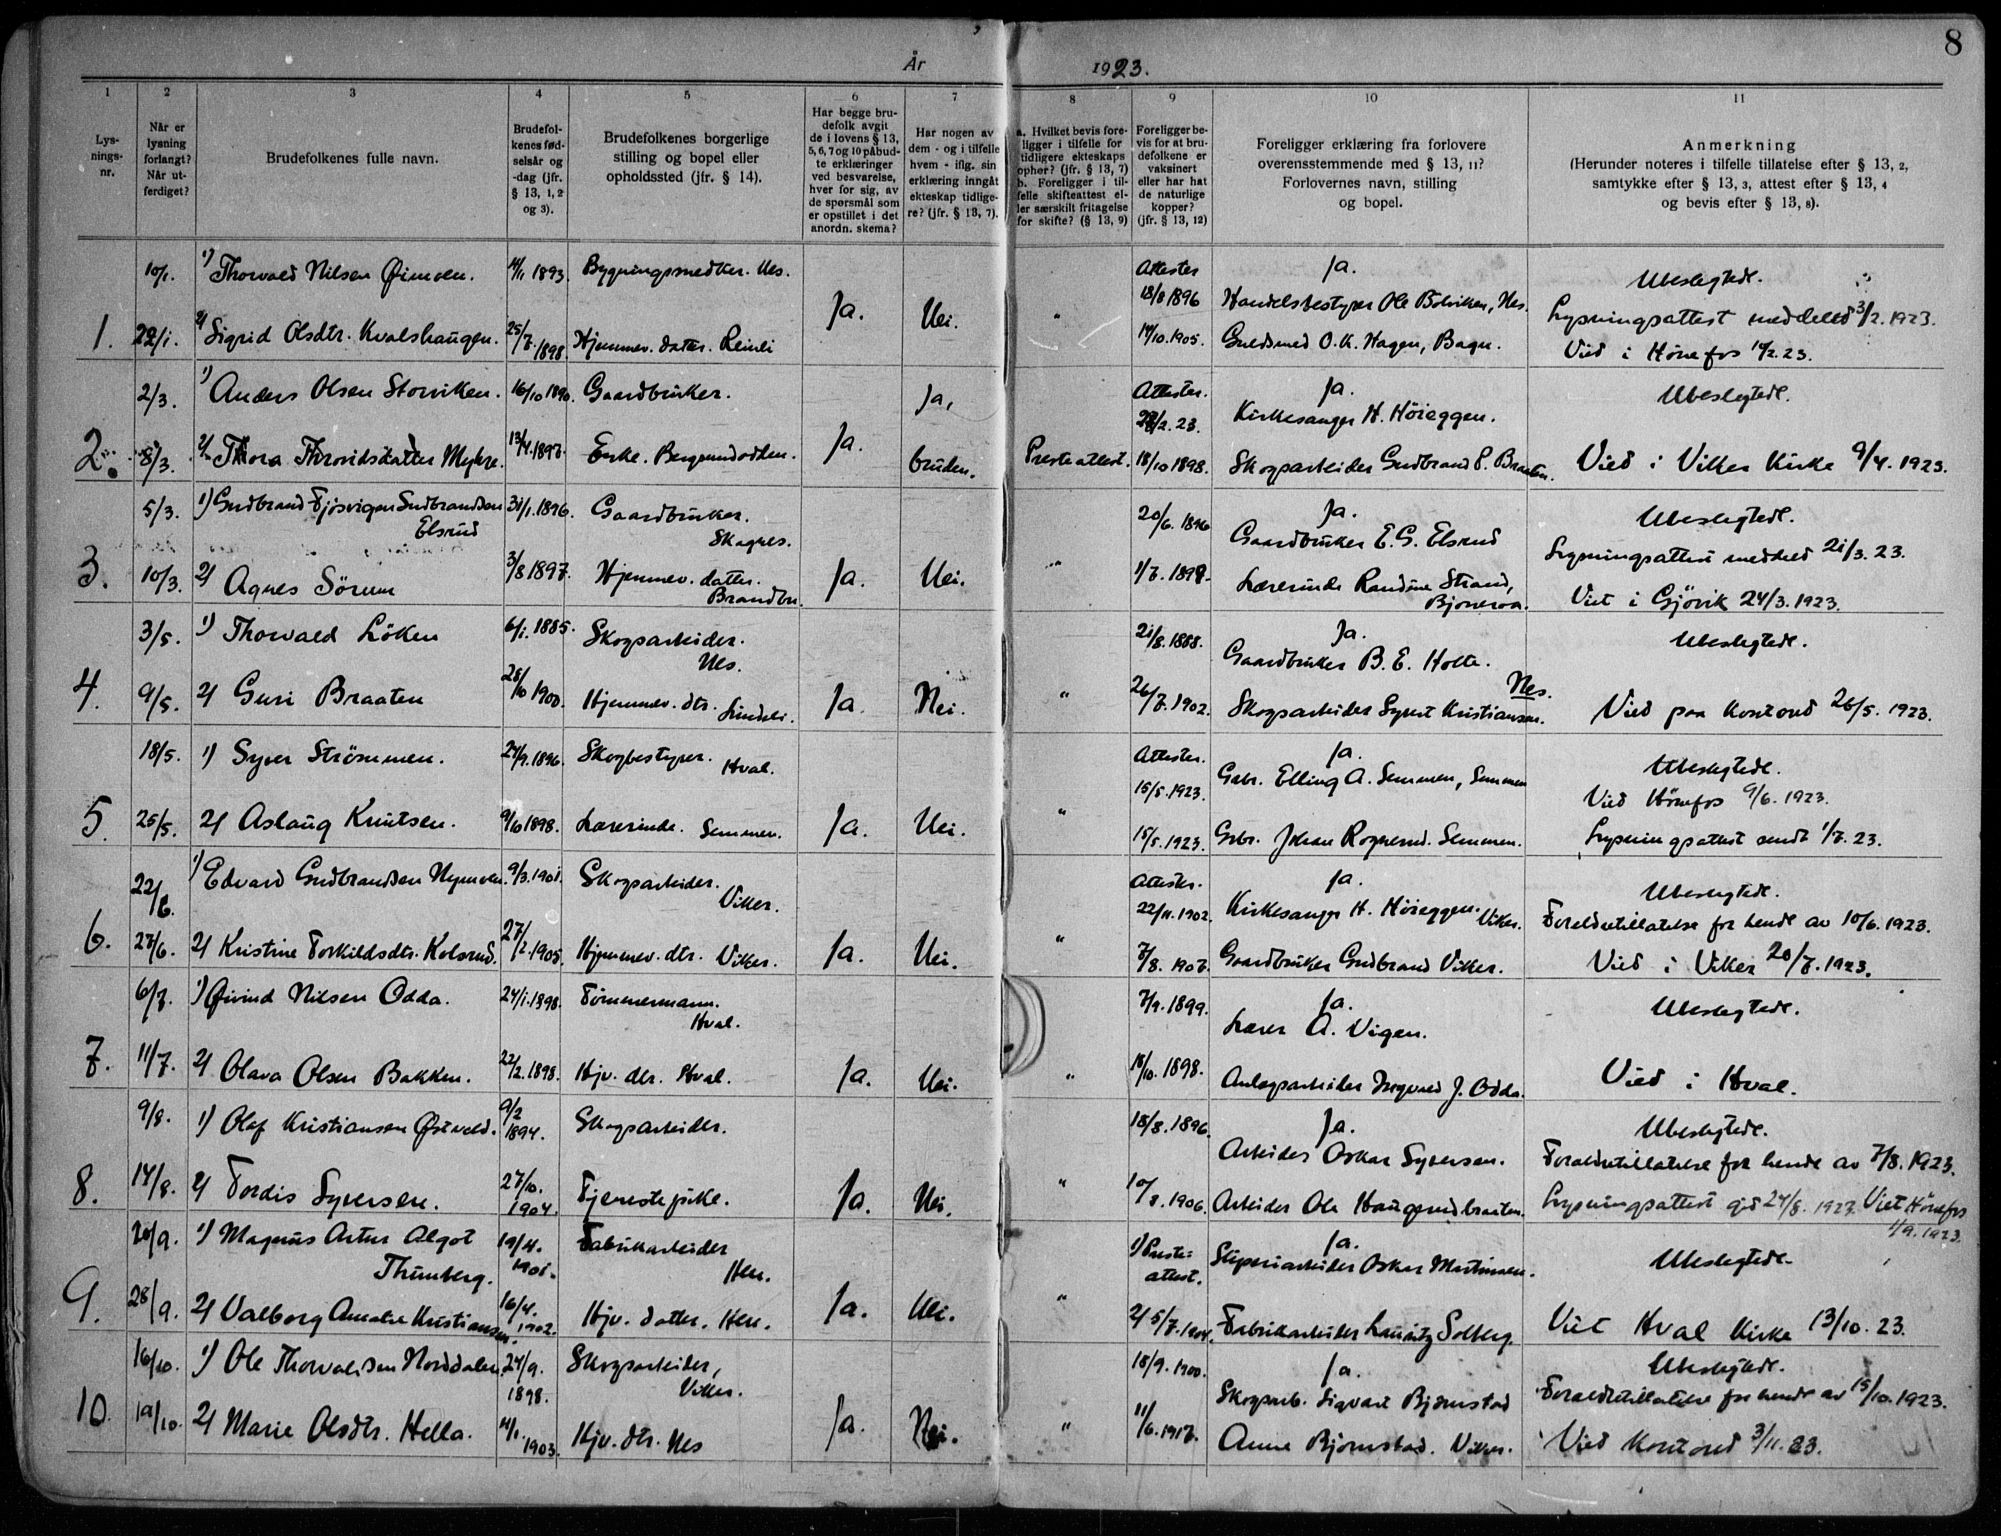 8
År 1923.
1 2 3 4 5 6 7 8 9 10 11
Lys-
nings-
nr.
Når er
lysning
forlangt?
Når ut-
ferdiget?
Brudefolkenes fulle navn.
Brudefol-
kenes fød-
selsår og
-dag (jfr.
§ 13, 1, 2
og 3).
Brudefolkenes borgerlige
stilling og bopel eller
opholdssted (jfr. § 14).
Har begge bru-
defolk avgit
de i lovens § 13,
5, 6, 7 og 10 påbud-
te erklæringer
ved besvarelse,
hver for sig, av
de spørsmål som
er opstillet i det
anordn. skema?
Har nogen av
dem - og i tilfelle
hvem - iflg. sin
erklæring inngåt
ekteskap tidlige-
re? (jfr. § 13, 7).
a. Hvilket bevis fore-
ligger i tilfelle for
tidligere ekteskaps
ophør? (jfr. § 13, 7)
b. Foreligger i til-
felle skifteattest el-
ler særskilt fritagelse
for skifte? (§ 13, 9)
Foreligger be-
vis for at bru-
defolkene er
vaksinert
eller har hat
de naturlige
kopper?
(jfr. § 13, 12)
Foreligger erklæring fra forlovere
overensstemmende med § 13, 11?
Forlovernes navn, stilling
og bopel.
Anmerkning
(Herunder noteres i tilfelle tillatelse efter § 13, 2,
samtykke efter § 13, 3, attest efter § 13, 4
og bevis efter § 13, 8).
10/1. 1) Thorvald Nilsen Øimoen. 1893. Bygningssnedker. Nes. Attester Ja. Ubeslegtede.
18/8 1896 Handelsbestyrer Ole Bolviken, Nes. Lysningsattest meddeled 3/2. 1923.
1. 22/1. 2) Sigrid Olsdtr. Kvalshaugen. 25/7. 1898. Hjemmev. datter. Reinli Ja. Nei. " 14/10. 1905. Guldsmed O. K. Hagen, Bagn. Vied i Hønefos 14/2. 23.
2/3. 1) Anders Olsen Storviken. 16/10 1890. Gaardbruker. Ja, Attester. Ja. Ubeslegtede.
2. 8/3. 2) Thora Throvidsdatter Myhre. 13/4. 1897. Enke. Ja. bruden. Presteattest. 18/10 1898. Kirkesanger H. Høieggen.
Skogsarbeider Gudbrand P. Braaten. Vied i Viker Kirke 9/4. 1923.
5/3. 1) Gudbrand Fjøsvigen Gudbrandsen
Elsrud 31/1. 1896. Gaardbruker.
Skagnes. 20/6. 1896 Ja. Ubeslegtede.
Gaardbruker E. G. Elsrud Lysningsattest meddeled 21/3. 23.
3. 10/3. 2) Agnes Sørum 3/8 1897. Hjemmev. datter.
Brandbu. Ja. Nei. " Lærerinde Randine Strand,
Bjoneroa. Viet i Gjøvik 24/3. 1923.
3/5. 1) Thorvald Løken 6/1. 1885. Skogsarbeider.
Nes. 21/8. 1888. Ja. Ubeslegtede.
Gaardbruker B. E. Holte.
Nes.
4. 9/5. 2) Guri Braaten 28/10 1900. Hjemmev. dtr. Ja. Nei. " 26/7. 1902. Skogsarbeider Syvert Kristiansen. Vied paa Kontoret 26/5. 1923.
18/5. 1) Syver Strømmen. 1896. Skogbestyrer. Hval. Attester. Ja. Ubeslegtede.
15/5. 1923. Gbr. Elling A. Semmen, Semmen Vied Hønefos 9/6. 1923.
5. 25/5. 2) Aslaug Knutsen. 9/6 1898. Lærerinde. Semmen. Ja. Nei. " 15/5. 1923. Gbr. Johan Rognerud. Semmen. Lysningsattest sendt 1/7. 23.
22/6. 1) Edvard Gudbrandsen Nymoen. 9/3. 1901. Skogsarbeider.
Viker. Attester. Ja. Ubeslegtede.
22/11. 1902. Kirkesanger H. Høieggen. Viker. Foreldretillatelse for hende av 10/6. 1923.
6. 27/6. 2) Kristine Torkildsdtr. Kolsrud. 27/2. 1905. Hjemmev. dtr. Viker. Ja. Nei. " 7/8. 1907. Gaardbruker Gudbrand Viker. Vied i Viker 20/7. 1923.
6/7. 1) Øivind Nilsen Odda. 24/1. 1898. Tømmermann.
Hval. 7/9. 1899. Ja. Ubeslegtede.
Lærer A. Vigen.
7. 11/7. 2) Olava Olsen Bakken. 22/2. 1898. Hjv. dtr. Hval. Ja. Nei. " 18/10. 1898. Anlegsarbeider Ingvald J. Odda. Vied i Hval.
9/8. 1) Olaf Kristiansen Østvold. 9/2 1894. Skogsarbeider. 18/8. 1896. Ja. Ubeslegtede.
Arbeider Oskar Syversen. Foreldretillatelse for hende av 7/8. 1923.
8. 14/8. 2) Tordis Syversen. 27/10. 1904. Tjenestepike. Ja. Nei. " 10/8. 1906. Arbeider Ole Haugerudbraaten. Lysningsattest git 24/8. 1923. Viet Hønefos
1/9. 1923.
20/9. 1) Magnus Artur Algot
Thunberg. 19/4. 1901. Fabrikarbeider
Hen. 1) Preste-
attest. Ja. Ubeslegtede.
Sliperiarbeider Oskar Martinsen.
9. 28/9. 2) Valborg Amalie Kristiansen. 16/4. 1902. Hjv. datter. Hen. Ja. Nei. " 2) 5/7. 1904. Fabrikarbeider Lauritz Solberg. Viet Hval Kirke 13/10. 23.
16/10. 1) Ole Thorvaldsen Norddalen. 24/9. 1898. Skogsarbeider,
Viker. 18/9. 1900. Ja. Ubeslegtede.
Skogsarb. Sigvart Bjørnstad Foreldretillatelse for hende av 15/10. 1923.
10. 19/10. 2) Marie Olsdtr. Hella. 4/1. 1903. Hjv. dtr. Nes Ja. Nei. " 11/6. 1917. Anne Bjørnstad. Viker. Vied Kontoret 3/11. 23.